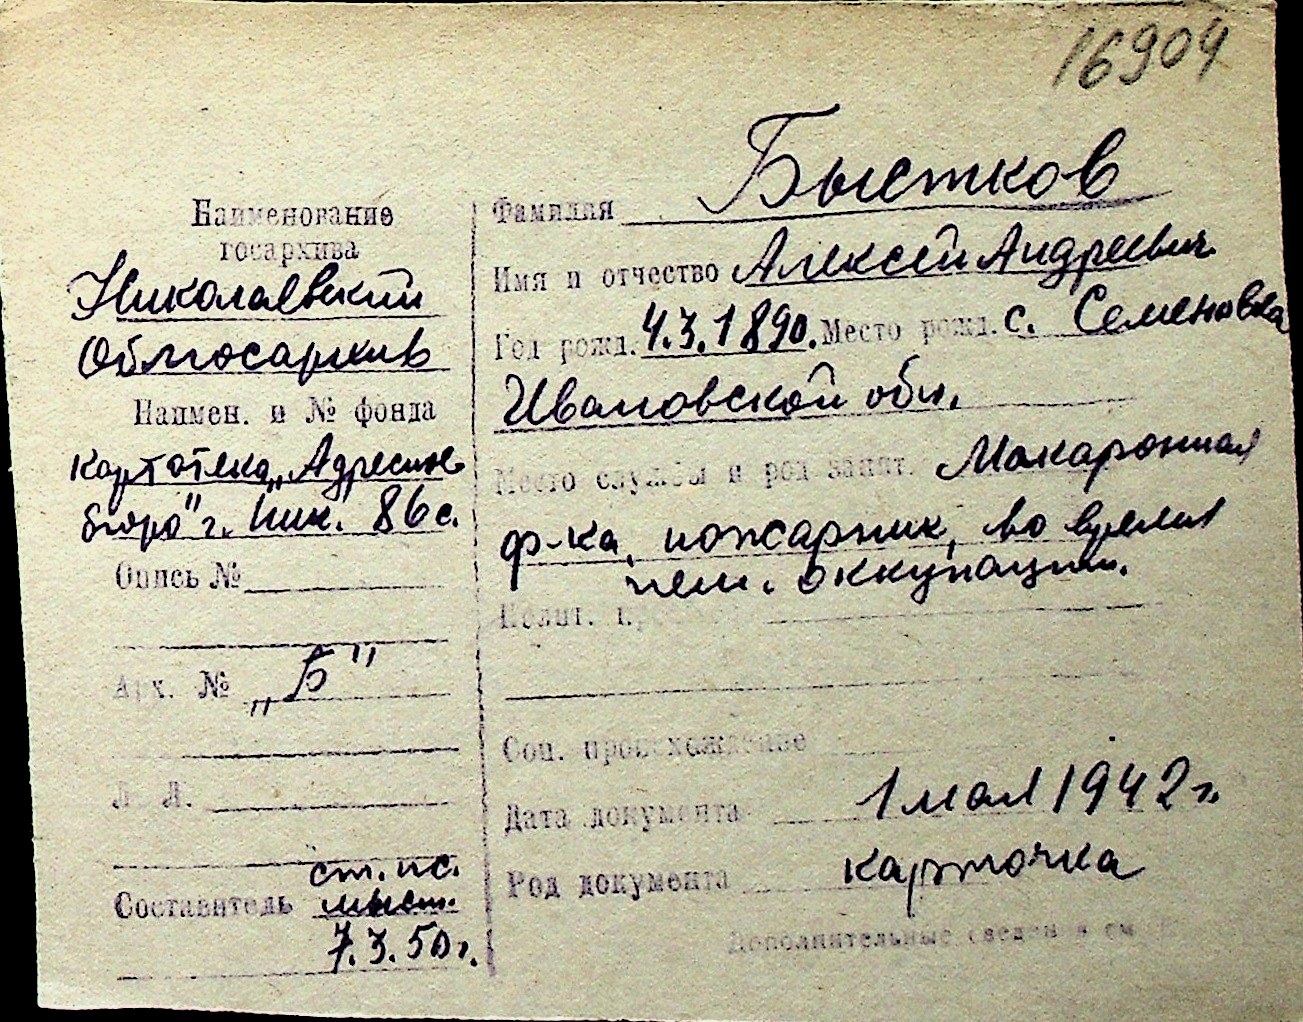 16904
Наименование
госархива
Николаевский
Облгосархив
Наимен. и № фонда
картотека „Адресное
бюро" г. Ник. 86 с.
Опись №
Арх. № „Б"
Л. Л.
Составитель ст. ис.
7.3.50 г.
Фамилия Быстков
Имя и отчество Алексей Андреевич
Год рожд. 4.3.1890. Место рожд. с. Семеновка
Ивановской обл.
Место службы и род занят. Макаронная
ф-ка, пожарник, во время
нем. оккупации.
Полит.
Соц. происхождение
Дата документа 1 мая 1942 г.
Род документа карточка
Дополнительные сведения см